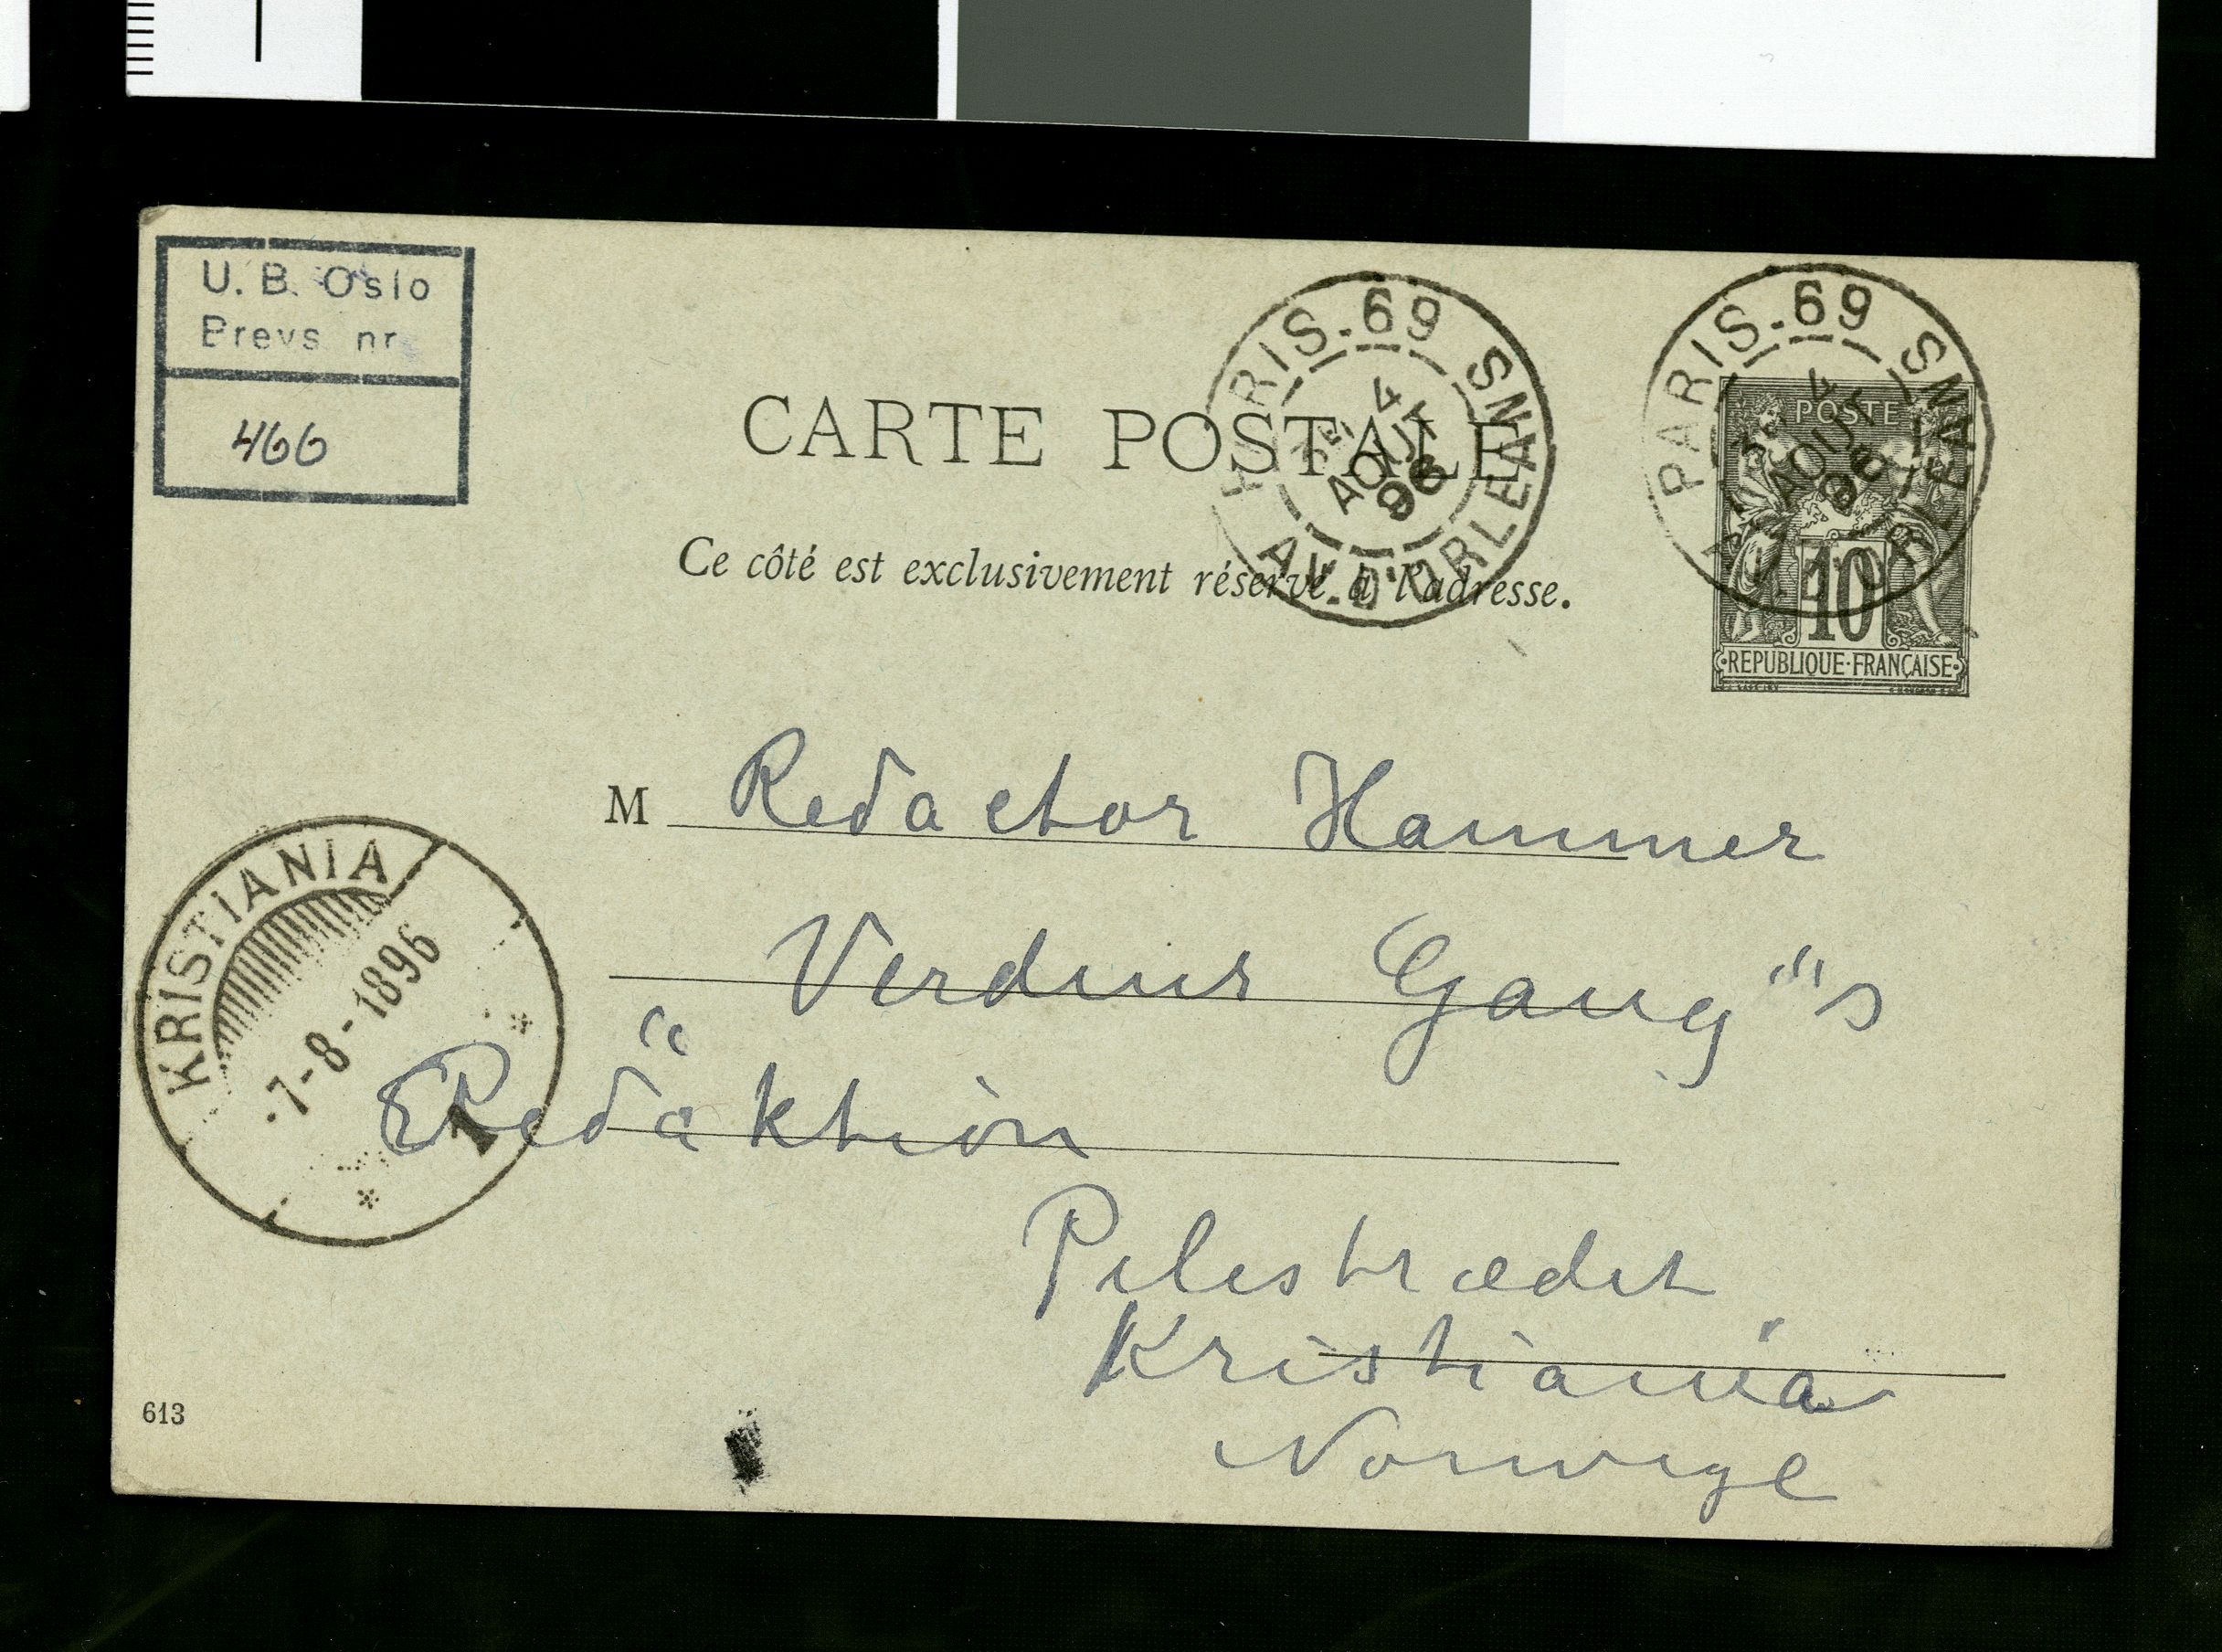 U. B. Oslo
Brevs. nr.
466
PARIS.69
AV. D'ORLEANS
4
AOUT
96
PARIS.69
AV. D'ORLEANS
4
AOUT
96
POSTE
10
REPUBLIQUE·FRANÇAISE
CARTE POSTALE
Ce côté est exclusivement réservé à l'adresse.
M Redactor Hammer
„ Verdens Gang"s
Redaktion
Pilestrædet
Kristiania
Norwege
KRISTIANIA
7-8-1896
1
613